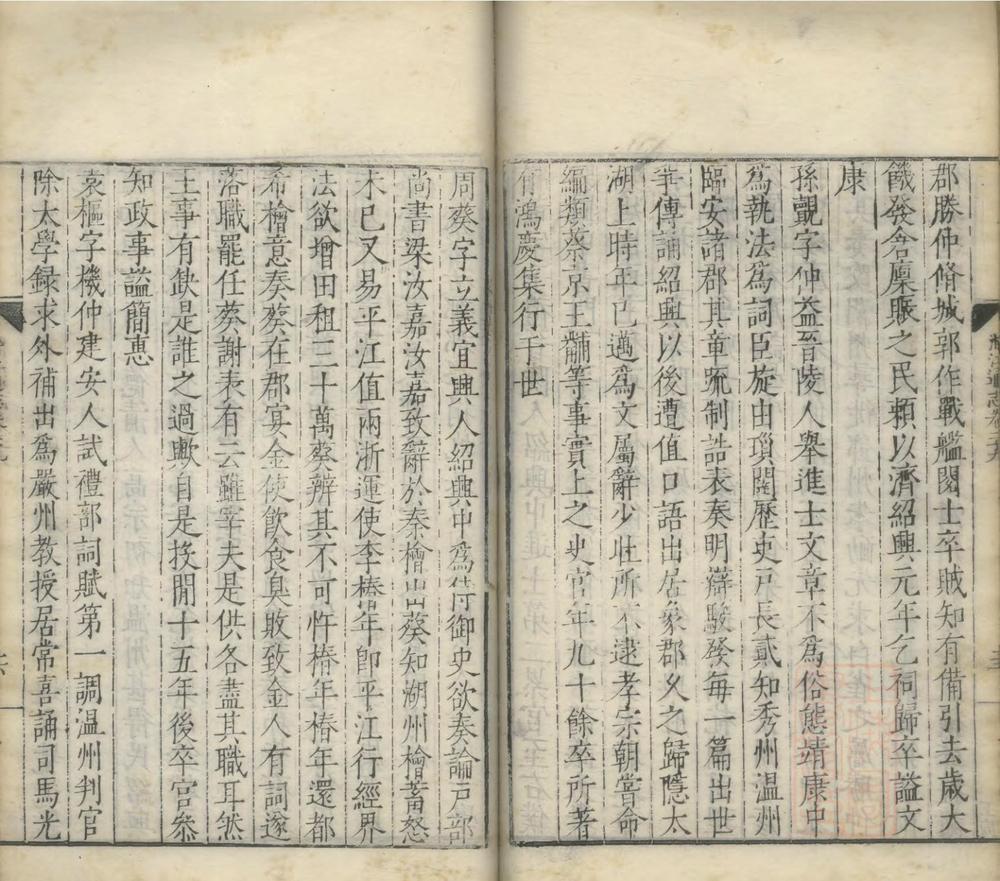 郡勝仲脩城郭作戰艦閱士卒賊知有備引去歲大
饑發倉廩賑之民賴以濟紹興元年乞祠歸卒謚文
康
孫覿字仲益晉陵人舉進士文章不爲俗態靖康中
爲執法爲詞臣旋由瑣闥歷吏戸長貳知秀州温州
臨安諸郡其章疏制誥表奏明辯駿發每一篇出世
爭傳誦紹興以後遭值口語出居象郡久之歸隱太
湖上時年已邁爲文屬辭少壯所不逮孝宗朝嘗命
編類蔡京王黼等事實上之史官年九十餘卒所著
有鴻慶集行于世
周葵字立義宜興人紹興中爲侍御史欲奏論戸部
尚書梁汝嘉汝嘉致辭於秦檜出葵知湖州檜蓄怒
未已又易平江值兩浙運使李椿年卽平江行經界
法欲增田租三十萬葵辨其不可忤椿年椿年還都
希檜意奏葵在郡宴金使飲食臭敗致金人有詞遂
落職罷任葵謝表有云雖宰夫是供各盡其職耳然
王事有缺是誰之過歟自是投閒十五年後卒官叅
知政事謚簡惠
袁樞字機仲建安人試禮部詞賦第一調温州判官
除太學録求外補出爲嚴州教授居常喜誦司馬光